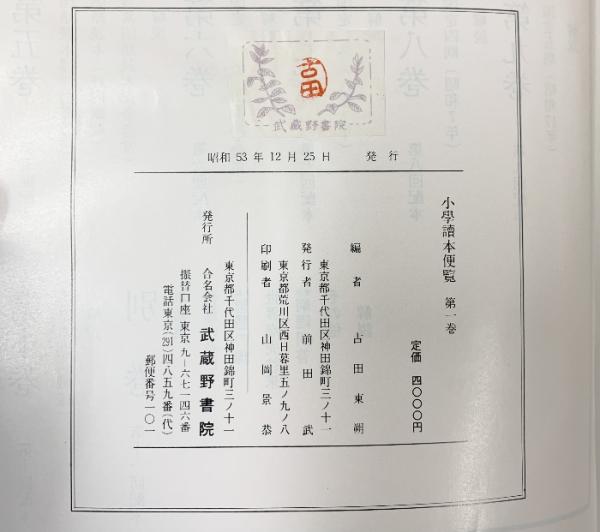 古田
武蔵野書院
昭和 53 年 12 月 25 日　発行
小學讀本便覧　第一巻
定価　四〇〇〇円
編者　古田東朔
東京都千代田区神田錦町三ノ十一
発行者　前田武
東京都荒川区西日暮里五ノ九ノ八
印刷者　山岡景恭
東京都千代田区神田錦町三ノ十一
発行所　合名会社　武蔵野書院
振替口座　東京九―六七一四六番
電話東京(291)四八五九番(代)
郵便番号一〇一